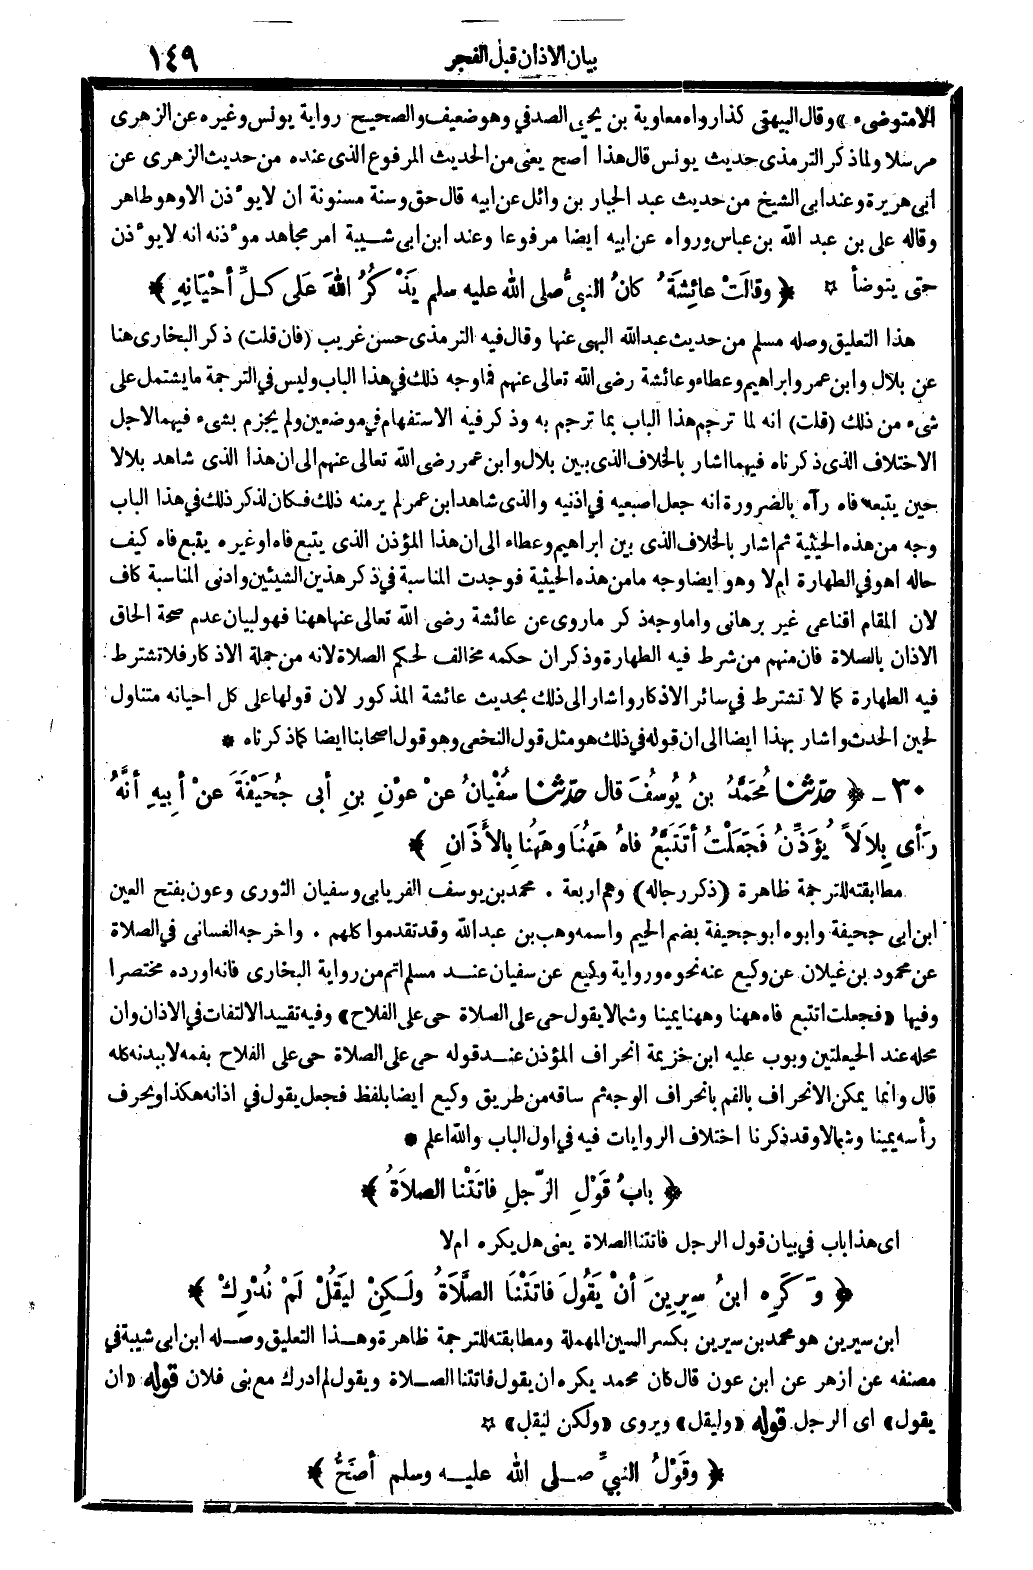 بيان الاذان قبل الفجر ١٤٩
الامتوضىء» وقال البيهقى كذا رواه معاوية بن يحيى الصدفي وهو ضعيف والصحيح رواية يونس وغيره عن الزهرى
مرسلا ولما ذكر الترمذى حديث يونس قال هذا اصح يعنى من الحديث المرفوع الذى عنده من حديث الزهرى عن
ابى هريرة وعند ابى الشيخ من حديث عبد الجبار بن وائل عن ابيه قال حق وسنة مسنونة ان لايؤذن الا وهو طاهر
وقاله على بن عبد الله بن عباس ورواه عن ابيه ايضا مرفوعا وعند ابن ابى شيبة امر مجاهد مؤذنه انه لايؤذن
حتى يتوضأ ☆ ﴿ وقالَتْ عائِشَةُ كانَ النبيُّ صلى الله عليه سلم يَذْكُرُ اللهَ عَلى كلِّ أحْيَانِهِ ﴾
هذا التعليق وصله مسلم من حديث عبدالله البهى عنها وقال فيه الترمذى حسن غريب (فان قلت) ذكر البخارى هنا
عن بلال وابن عمر وابراهيم وعطاء وعائشة رضى الله تعالى عنهم فما وجه ذلك في هذا الباب وليس في الترجمة ما يشتمل على
شىء من ذلك (قلت) انه لما ترجم هذا الباب بما ترجم به وذكر فيه الاستفهام في موضعين ولم يجزم بشىء فيهما لاجل
الاختلاف الذى ذكرناه فيهما اشار بالخلاف الذى بين بلال وابن عمر رضى الله تعالى عنهم الى ان هذا الذى شاهد بلالا
حين يتبعه فاه رآه بالضرورة انه جعل اصبعيه في اذنيه والذى شاهد ابن عمر لم يرمنه ذلك فكان لذكر ذلك في هذا الباب
وجه من هذه الحيثية ثم اشار بالخلاف الذى بين ابراهيم وعطاء الى ان هذا المؤذن الذى يتبع فاه او غيره يقبع فاه كيف
حاله اهو في الطهارة ام لا وهو ايضا وجه ما من هذه الحيثية فوجدت المناسبة في ذكر هذين الشيئين وادنى المناسبة كاف
لان المقام اقناعى غير برهانى واما وجه ذكر ما روى عن عائشة رضى الله تعالى عنها ههنا فهو لبيان عدم صحة الحاق
الاذان بالصلاة فان منهم من شرط فيه الطهارة وذكر ان حكمه مخالف لحكم الصلاة لانه من جملة الاذكار فلا تشترط
فيه الطهارة كما لا تشترط في سائر الاذكار واشار الى ذلك بحديث عائشة المذكور لان قولها على كل احيانه متناول
لحين الحدث واشار بهذا ايضا الى ان قوله في ذلك هو مثل قول النخعى وهو قول اصحابنا ايضا كما ذكرناه *
٣٠ - ﴿ حدّثنا مُحَمَّدُ بنُ يُوسُفَ قال حدّثنا سُفْيَانُ عنْ عوْنِ بنِ أبى جُحَيْفَةَ عنْ أبِيهِ أنَّهُ
رَأى بِلاَلاً يُؤَذِّنُ فَجَعَلْتُ أتَتَبَّعُ فاهُ هَهُنَا وهَهُنا بِالأَذَانِ ﴾
مطابقته للترجمة ظاهرة (ذكر رجاله) وهم اربعة . محمد بن يوسف الفريابى وسفيان الثورى وعون بفتح العين
ابن ابى جحيفة وابوه ابو جحيفة بضم الجيم واسمه وهب بن عبدالله وقد تقدموا كلهم . واخرجه الغسانى في الصلاة
عن محمود بن غيلان عن وكيع عنه نحوه ورواية وكيع عن سفيان عند مسلم اتم من رواية البخارى فانه اورده مختصرا
وفيها «فجعلت اتتبع فاه ههنا وههنا يمينا وشمالا يقول حى على الصلاة حى على الفلاح» وفيه تقييد الالتفات في الاذان وان
محله عند الحيعلتين وبوب عليه ابن خزيمة انحراف المؤذن عند قوله حى على الصلاة حى على الفلاح بفمه لا ببدنه كله
قال وانما يمكن الانحراف بالفم بانحراف الوجه ثم ساقه من طريق وكيع ايضا بلفظ فجعل يقول في اذانه هكذا ويحرف
رأسه يمينا وشمالا وقد ذكرنا اختلاف الروايات فيه في اول الباب والله اعلم *
﴿ بابُ قَوْلِ الرَّجلِ فاتَتْنا الصلاَةُ ﴾
اى هذا باب في بيان قول الرجل فاتتنا الصلاة يعنى هل يكره ام لا
﴿ وَكَرِه ابنُ سِيرِينَ أنْ يَقُولَ فاتَتْنَا الصَّلاَةُ ولَكِنْ لِيَقُلْ لَمْ نُدْرِكْ ﴾
ابن سيرين هو محمد بن سيرين بكسر السين المهملة ومطابقته للترجمة ظاهرة وهذا التعليق وصله ابن ابى شيبة في
مصنفه عن ازهر عن ابن عون قال كان محمد يكره ان يقول فاتتنا الصلاة ويقول لم ادرك مع بنى فلان قوله «ان
يقول» اى الرجل قوله «وليقل» ويروى «ولكن ليقل» ☆
﴿ وقَوْلُ النبيِّ صلى الله عليه وسلم أصَحُّ ﴾